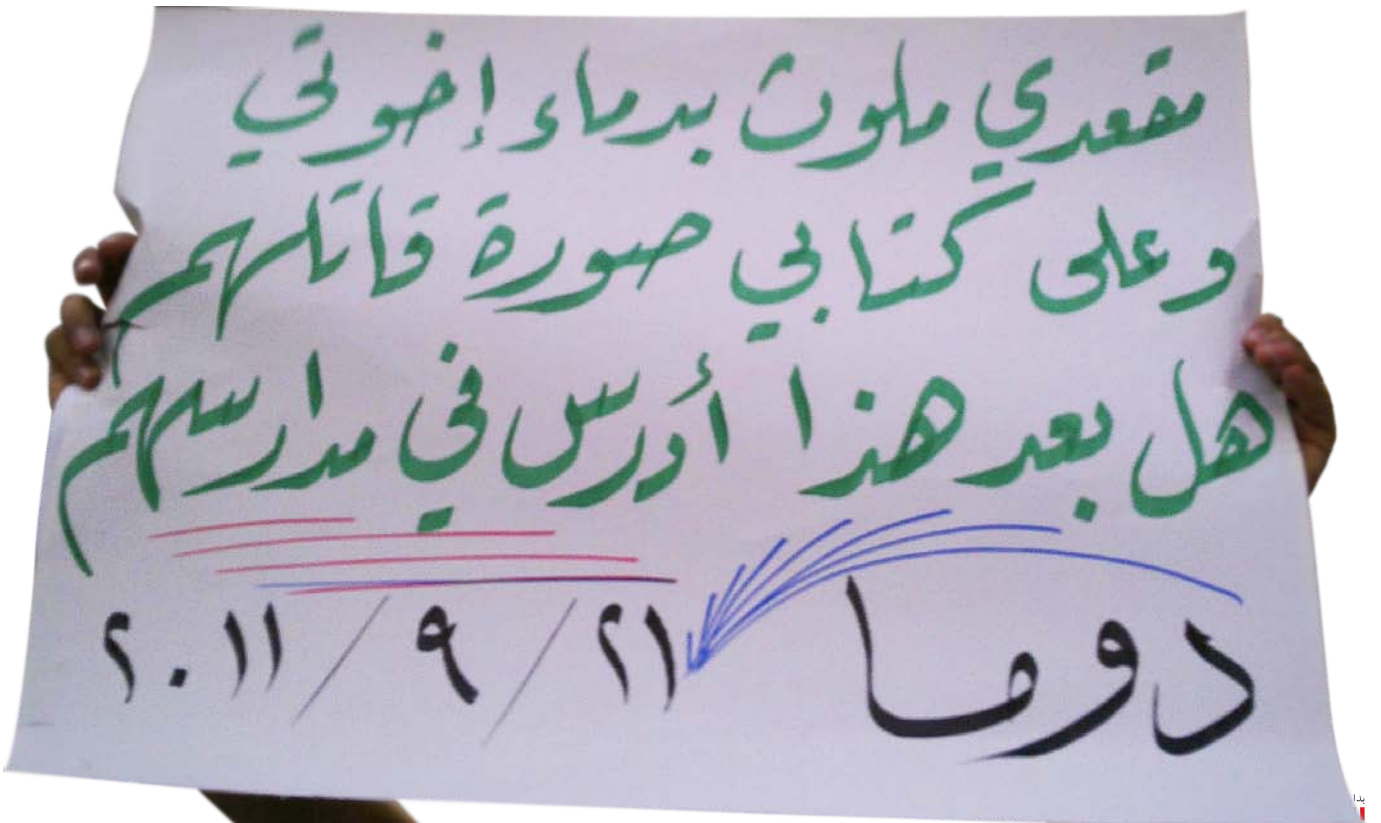 مقعدي ملوث بدماء إخوتي
وعلى كتابي صورة قاتلهم
هل بعد هذا أدرس في مدارسهم
دوما ٢١/٩/٢٠١١